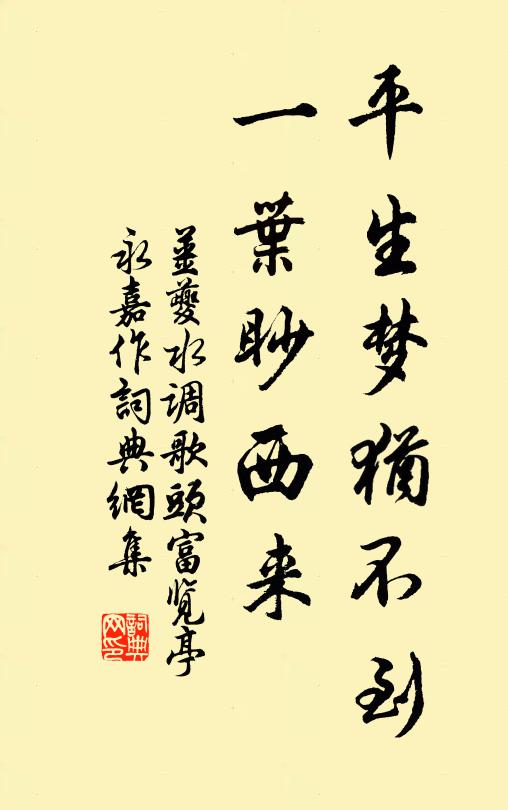 平生梦犹不到
一葉眇西来
姜夔水调歌頭富览亭
永嘉作詞典網集
詞典网印